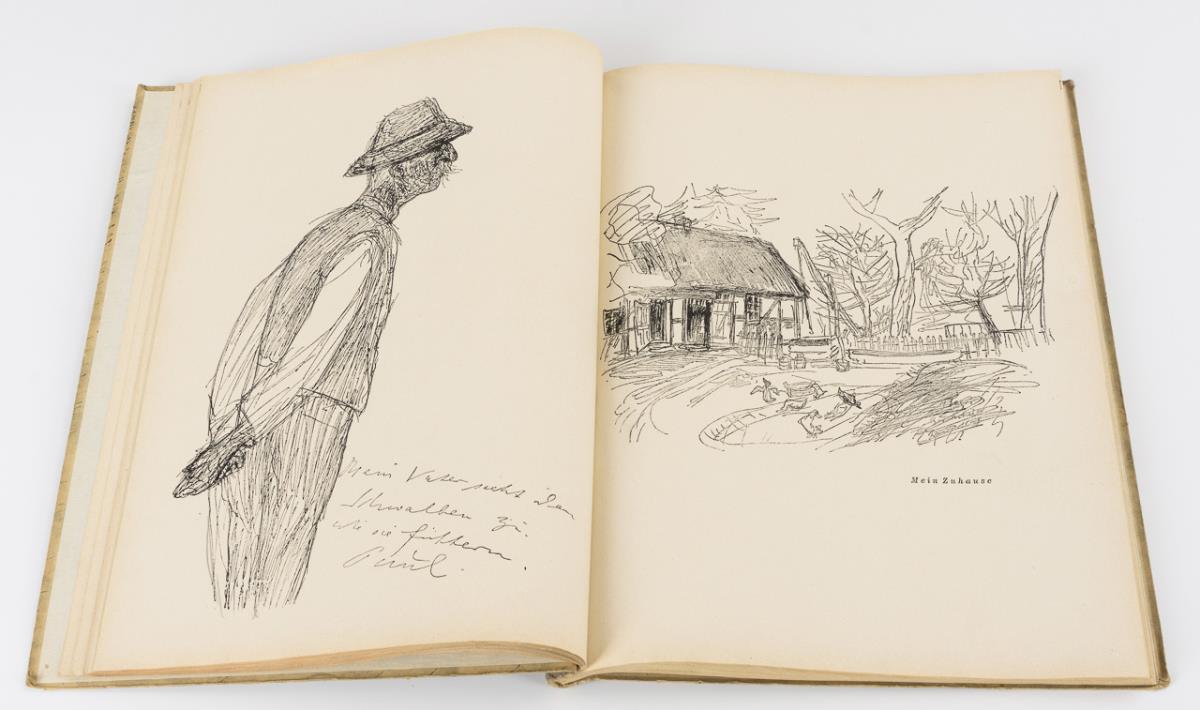 Mein Vater sieht den
Schwalben zu.
wie sie füttern.
Paul.
Mein Zuhause